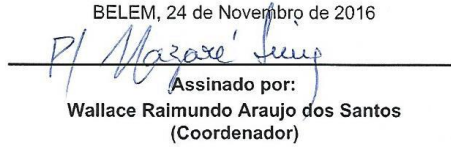 BELEM, 24 de Novembro de 2016
P/ Nazaré
Assinado por:
Wallace Raimundo Araujo dos Santos
(Coordenador)